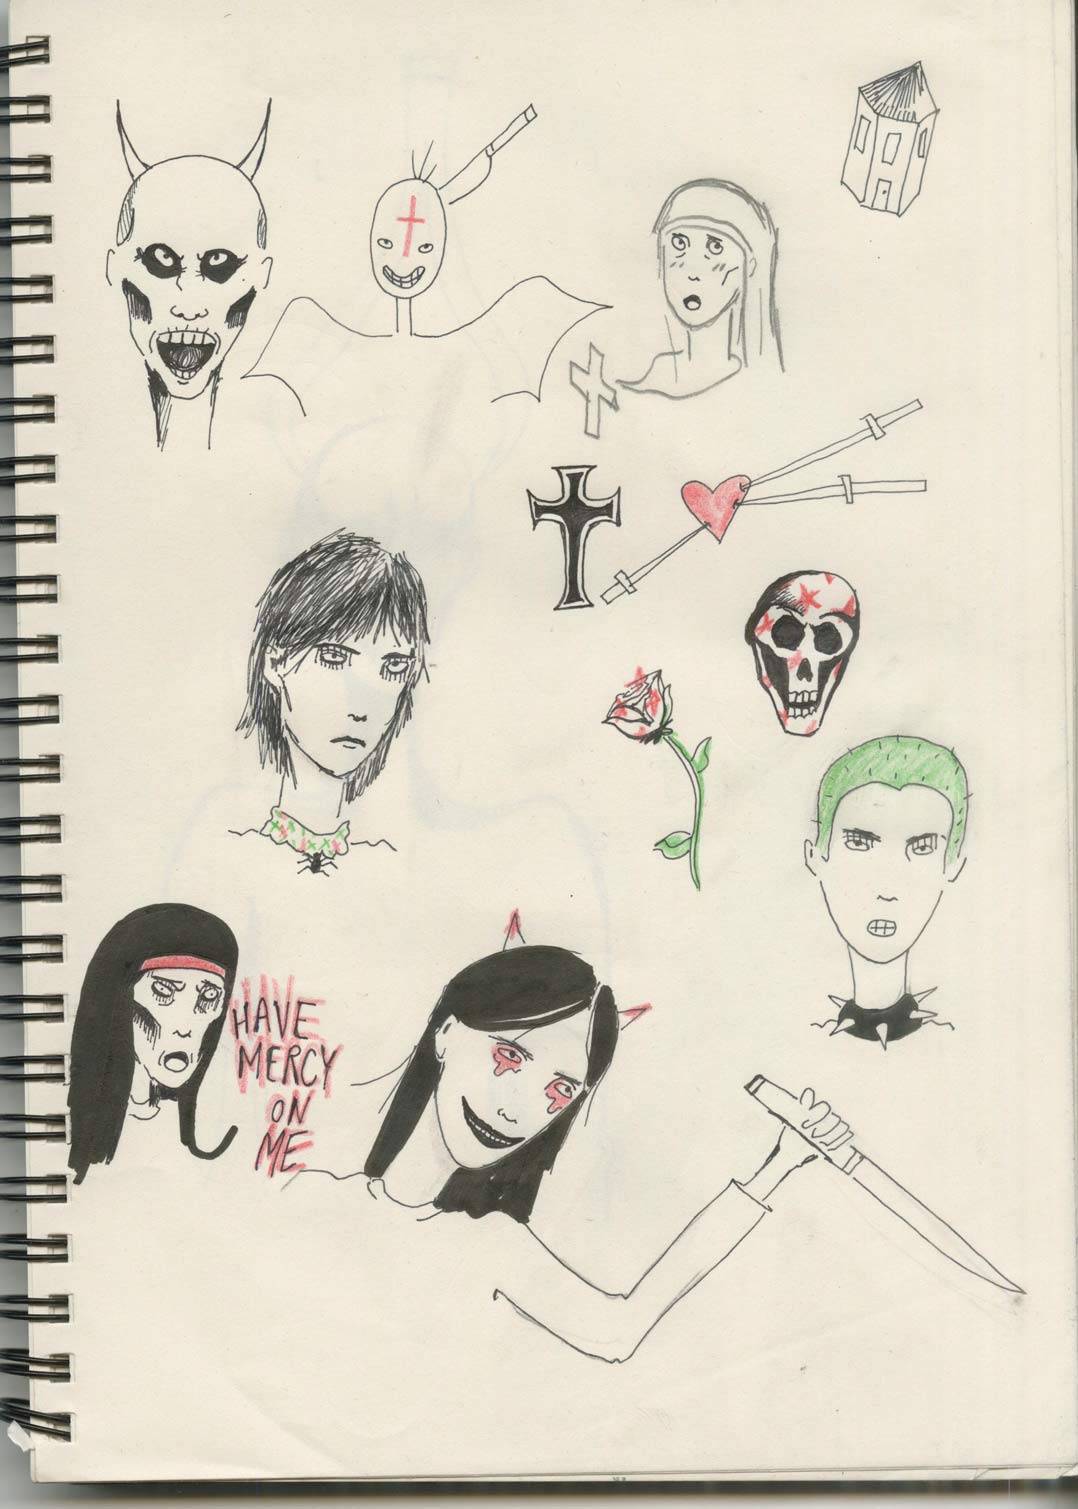 HAVE
MERCY
ON
ME